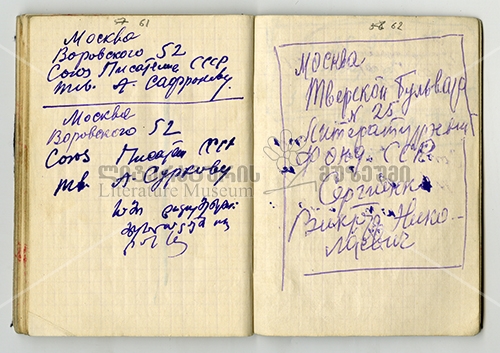 61
Москва
Воровского 52
Союз Писателе СССР
тов. А. Сафронову.
Москва
Воровского 52
Союз Писател СССР
тв. А. Суркову
62
Москва
Тверской Бульвар
N 25
Литературный
Фонд. СССР
Виктор Нико-
лаевич
ლიტერატურის მუზეუმი
Literature Museum